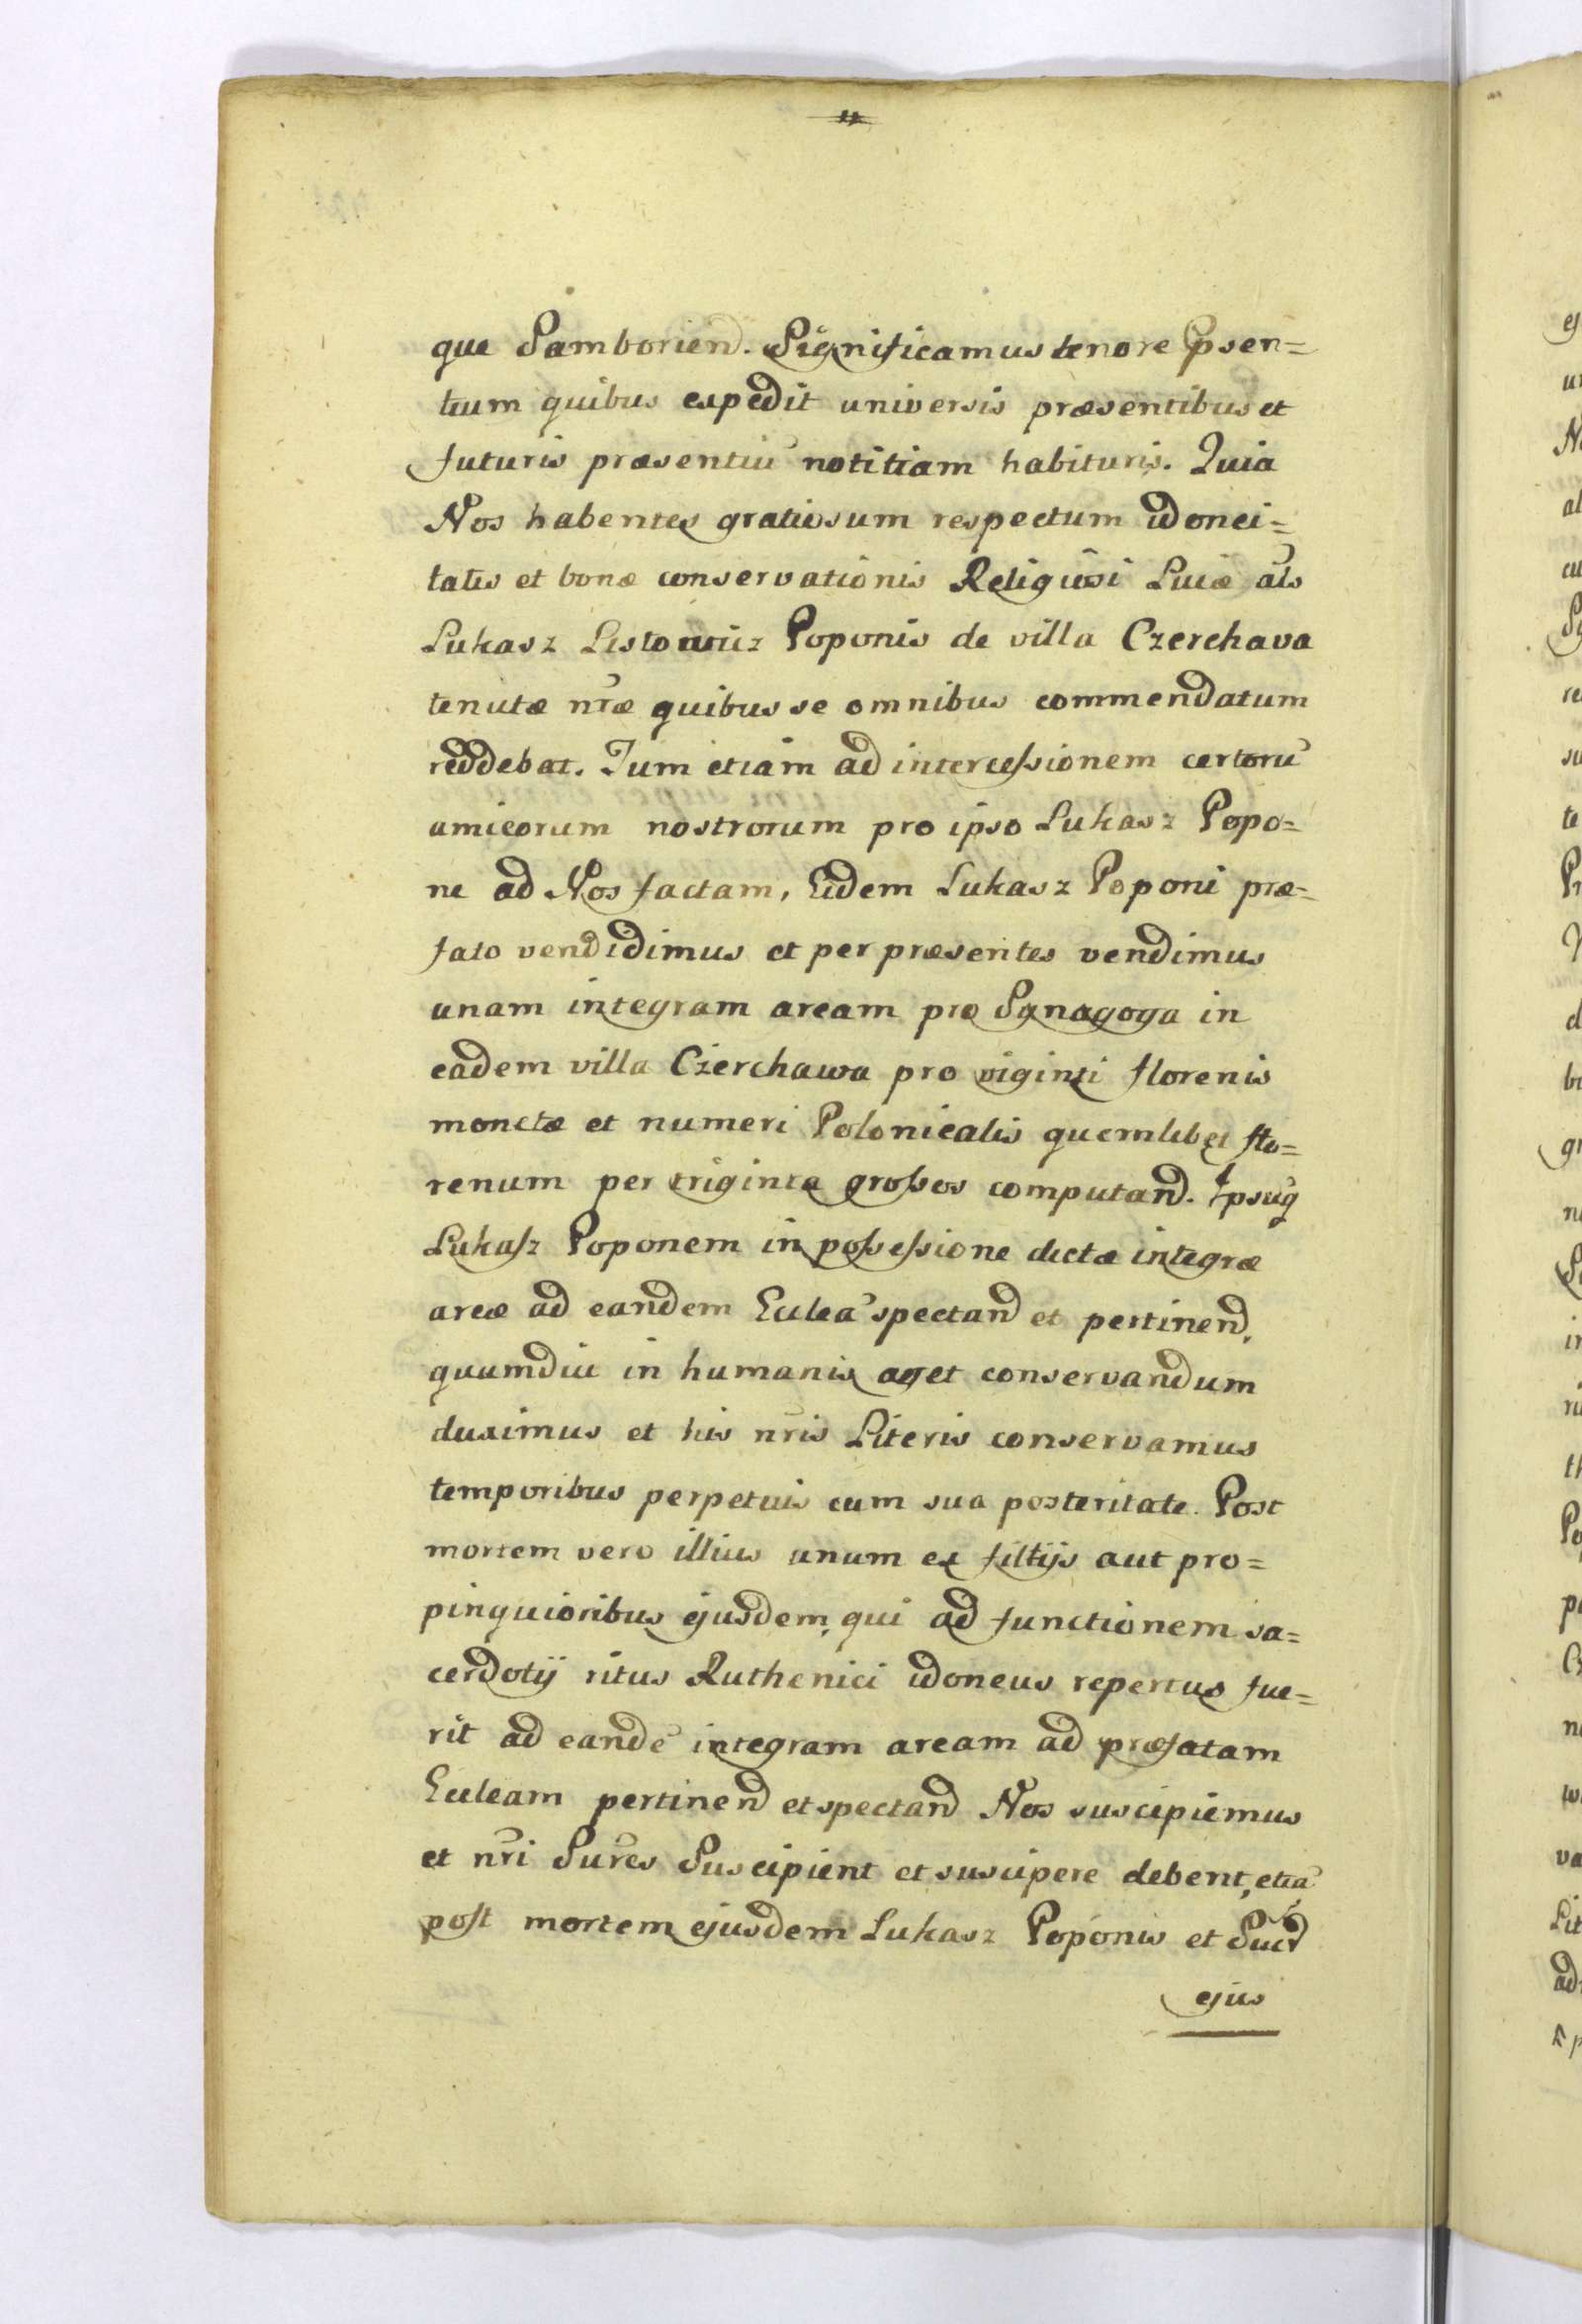 que Samborien. Significamus tenore psen=
tium quibus expedit universis præsentibus et
futuris præsentiu̅ notitiam habituris. Quia
Nos habentes gratiosum respectum idonei=
tatis et bonæ conservationis Religiosi Lucæ als
Lukasz Listowicz Poponis de villa Czerchava
tenutæ nræ quibus se omnibus commendatum
reddebat. Tum etiam ad intercessionem certoru̅
amicorum nostrorum pro ipso Lukasz Popo=
ne ad Nos factam, Eidem Lukasz Poponi præ=
fato vendidimus et per præsentes vendimus
unam integram aream pro Synagoga in
eadem villa Czerchawa pro viginti florenis
monetæ et numeri Polonicalis quemlibet flo=
renum per triginta grossos computand. Ipsuq
Lukasz Poponem in possessione dictæ integræ
areæ ad eandem Eulea̅ spectand et pertinend,
quumdiu in humanis aget conservandum
duximus et his nris Literis conservamus
temporibus perpetuis cum sua posteritate. Post
mortem vero illius unum ex filijs aut pro=
pinquioribus ejusdem, qui ad functionem sa=
cerdotij ritus Ruthenici idoneus repertus fue=
rit ad eande̅ integram aream ad præfatam
Euleam pertinend et spectand Nos suscipiemus
et nri Sures Suscipient et suscipere debent, etia̅
post mortem ejusdem Lukasz Poponis et Sucr
ejus